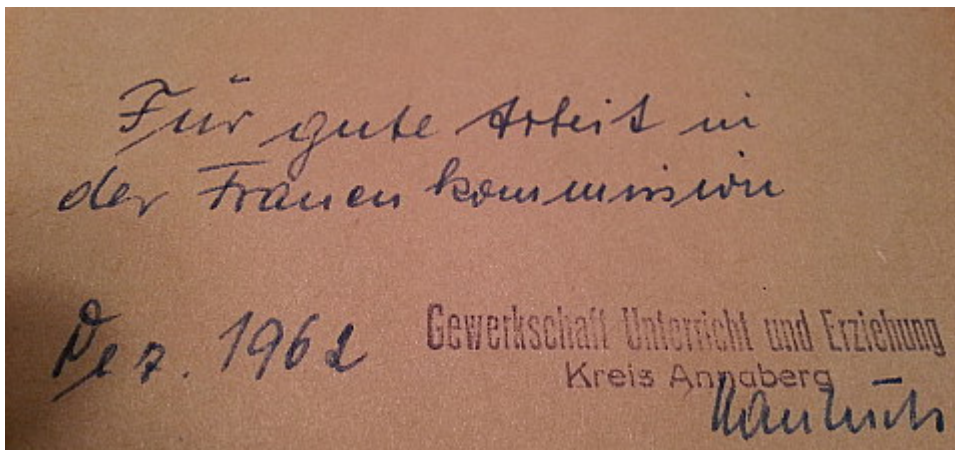 Für gute Arbeit in
der Frauenkommission
Dez. 1962
Gewerkschaft Unterricht und Erziehung
Kreis Annaberg